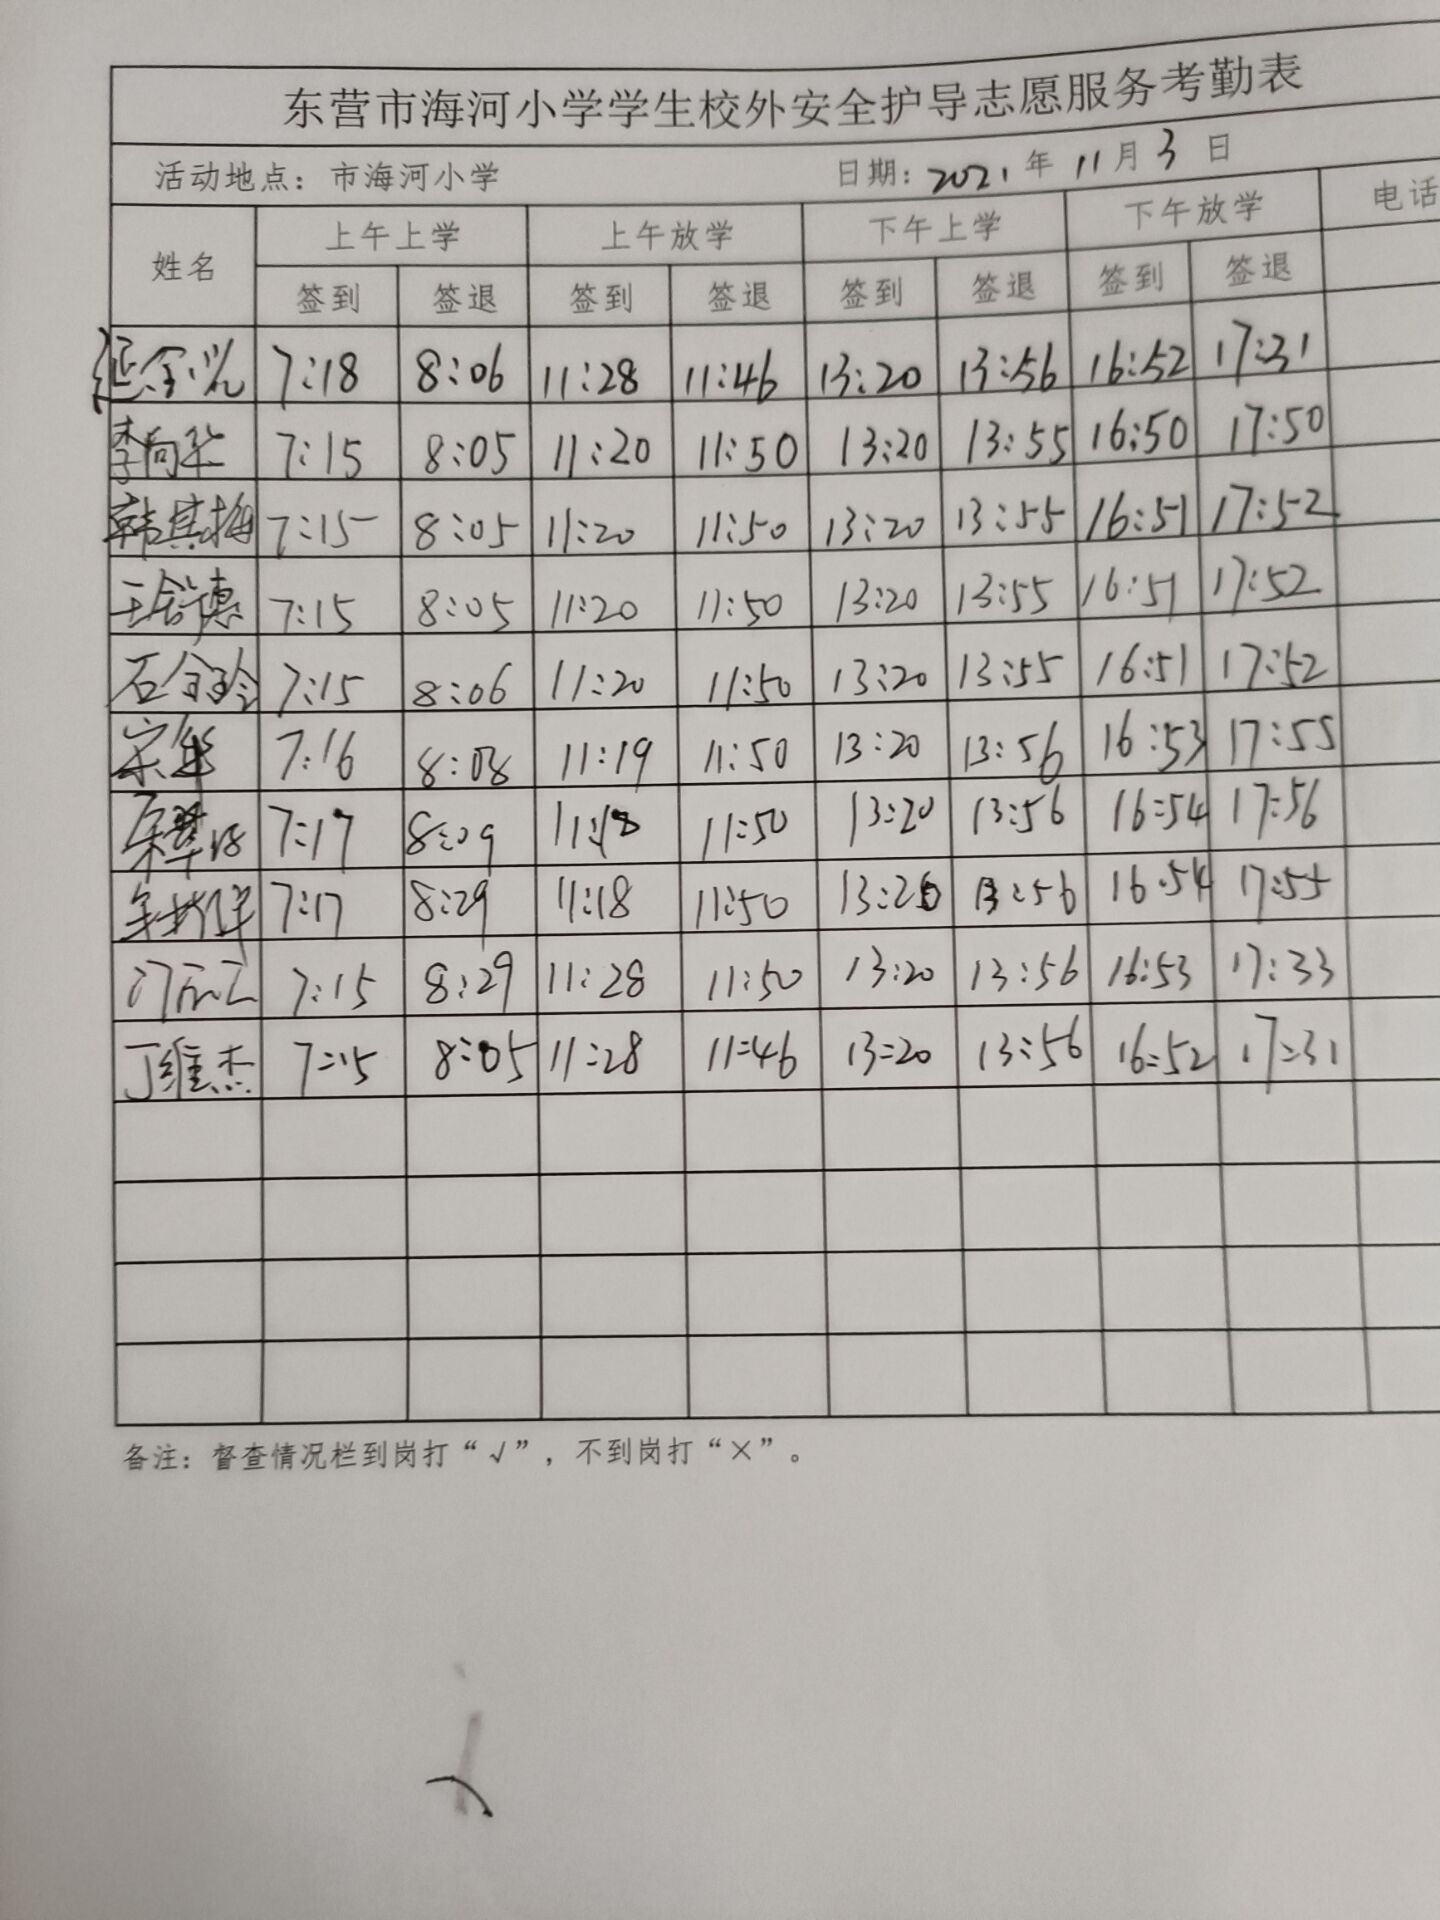 东营市海河小学学生校外安全护导志愿服务考勤表
活动地点：市海河小学 日期：2021年11月3日
姓名 上午上学 上午放学 下午上学 下午放学 电话
签到 签退 签到 签退 签到 签退 签到 签退
7:18 8:06 11:28 11:46 13:20 13:56 16:52 17:31
李向华 7:15 8:05 11:20 11:50 13:20 13:55 16:50 17:50
韩其梅 7:15 8:05 11:20 11:50 13:20 13:55 16:51 17:52
王 7:15 8:05 11:20 11:50 13:20 13:55 16:51 17:52
石 7:15 8:06 11:20 11:50 13:20 13:55 16:51 17:52
宋 7:16 8:08 11:19 11:50 13:20 13:56 16:53 17:55
7:17 8:09 11:18 11:50 13:20 13:56 16:54 17:56
7:17 8:29 11:18 11:50 13:20 13:56 16:54 17:55
7:15 8:29 11:28 11:50 13:20 13:56 16:53 17:33
丁维杰 7:15 8:05 11:28 11:46 13:20 13:56 16:52 17:31
备注：督查情况栏到岗打“√”，不到岗打“×”。